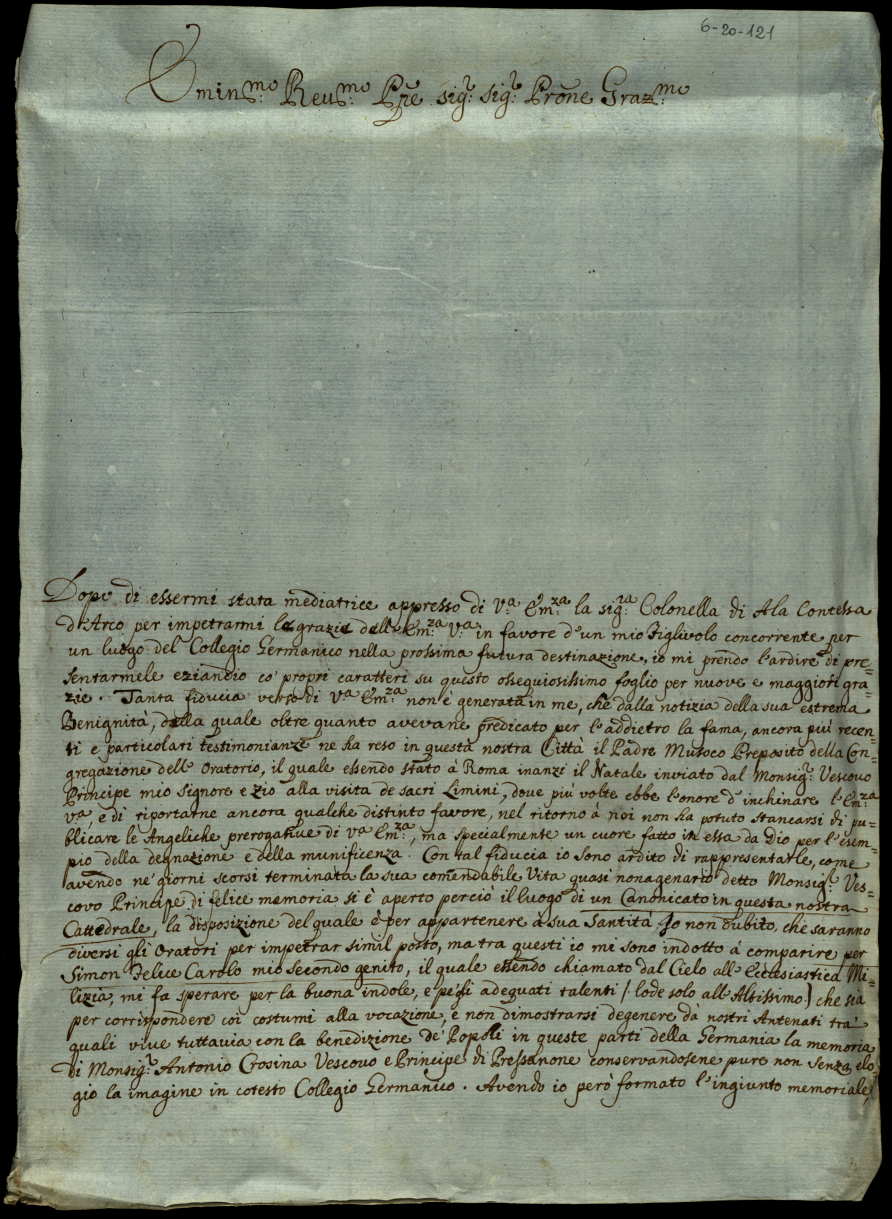 6-20-121
Emin:mo Reu:mo Pñe sig:r sig:r Prõne Graz:mo
Dopo di essermi stata mediatrice appresso di V:a Em:za la sig:ra Colonella di Ala Contessa
d'Arco per impetrarmi le grazie dell'Em:za V:a in favore d'un mio Figlivolo concorrente per
un luogo del Collegio Germanico nella prossima futura destinazione, io mi prendo l'ardire di pre=
sentarmele eziandio co' propri caratteri su questo ossequiosissimo foglio per nuove e maggiori gra=
zie. Tanta fiducia verso di V:a Em:za non è generata in me, che dalla notizia della sua estrema
Benignità, della quale oltre quanto aveva ne predicato per l'addietro la fama, ancora più recen=
ti e particolari testimonianze ne ha reso in questa nostra Città il Padre Musoco Preposito della Con=
gregazione dell'Oratorio, il quale essendo stato à Roma inanzi il Natale inviato dal Monsig:r Vescovo
Principe mio Signore e zio alla visita de sacri Limini, dove più volte ebbe l'onore d'inchinare l'Em:za
V:a, e di riportarne ancora qualche distinto favore, nel ritorno à noi non ha potuto stancarsi di pu=
blicare le Angeliche prerogative di V:a Em:za, ma specialmente un cuore fatto in essa da Dio per l'esem=
pio della degnazione e della munificenza. Con tal fiducia io sono ardito di rappresentarle, come
avendo ne' giorni scorsi terminata la sua comendabile Vita quasi nonagenario detto Monsig:r Ves=
covo Principe di felice memoria si è aperto perciò il luogo di un Canonicato in questa nostra
Cattedrale, la disposizione del quale è per appartenere à sua Santità. Io non dubito, che saranno
diversi gli Oratori per impetrar simil posto, ma tra questi io mi sono indotto à comparire per
Simon Felice Carolo mio secondo genito, il quale essendo chiamato dal Cielo all'Ecclesiastica Mi=
lizia, mi fa sperare per la buona indole, e pe'gli adeguati talenti (lode solo all'Altissimo) che sia
per corrispondere coi costumi alla vocazione, e non dimostrarsi degenere da nostri Antenati trà
quali vive tuttavia con la benedizione de' Popoli in queste parti della Germania la memoria
di Monsig:r Antonio Crosina Vescovo e Principe di Pressanone conservandosene pure non senza elo=
gio la imagine in cotesto Collegio Germanico. Avendo io però formato l'ingiunto memoriale,